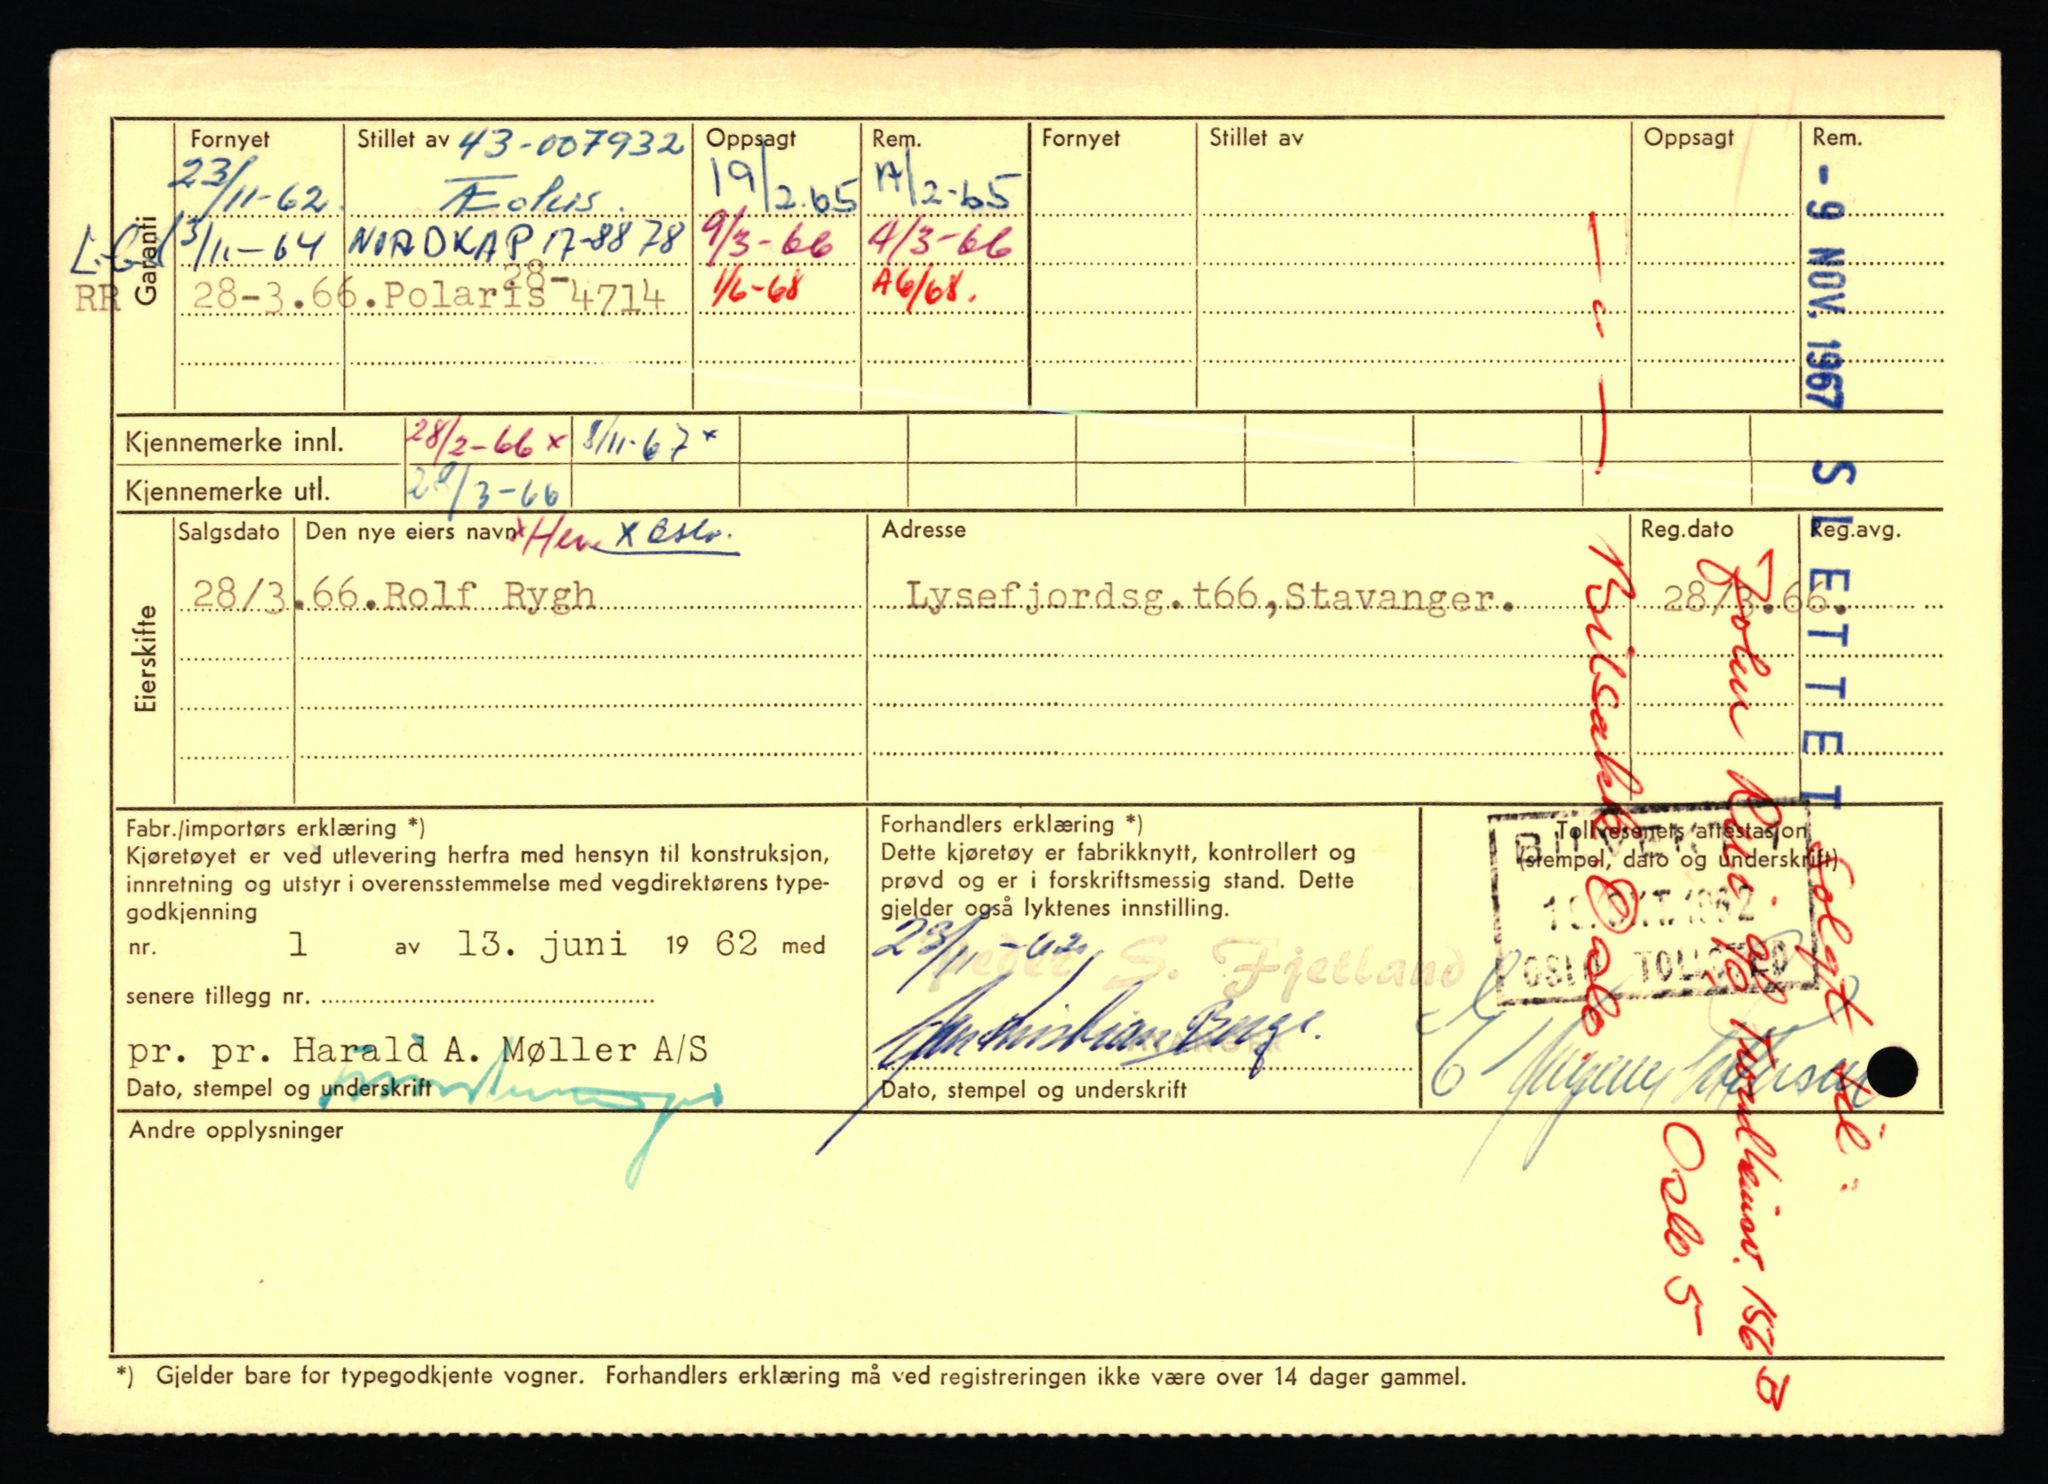 Garanti
Fornyet Stillet av 43-007932 Oppsagt Rem. Fornyet Stillet av Oppsagt Rem.
23/11-62. Æolus. 19/2.65 A/2-65
3/11-64 NORDKAP 17-8878 9/3-66 A/3-66
RR 28-3.66.Polaris 28-4714 1/6-68 A6/68.
- 9 NOV. 1967 SLETTET
Kjennemerke innl. 28/2-66 x 8/11-67 x
Kjennemerke utl. 28/3-66
Eierskifte
Salgsdato Den nye eiers navn x Her x Oslo. Adresse Reg.dato Reg.avg.
28/3.66.Rolf Rygh Lysefjordsg.t66,Stavanger. 28/3.66.
Fabr./importørs erklæring *)
Kjøretøyet er ved utlevering herfra med hensyn til konstruksjon,
innretning og utstyr i overensstemmelse med vegdirektørens type-
godkjenning
nr. 1 av 13. juni 19 62 med
senere tillegg nr.
pr. pr. Harald A. Møller A/S
Dato, stempel og underskrift
Forhandlers erklæring *)
Dette kjøretøy er fabrikknytt, kontrollert og
prøvd og er i forskriftsmessig stand. Dette
gjelder også lyktenes innstilling.
23/11-62
Peder S. Fjetland
Dato, stempel og underskrift
Tollvesenets attestasjon
(stempel, dato og underskrift)
OSLO TOLLSTED
Solgt til:
Trondheimsv. 156 B
Oslo 5
Bilsakk. Oslo
Andre opplysninger
*) Gjelder bare for typegodkjente vogner. Forhandlers erklæring må ved registreringen ikke være over 14 dager gammel.